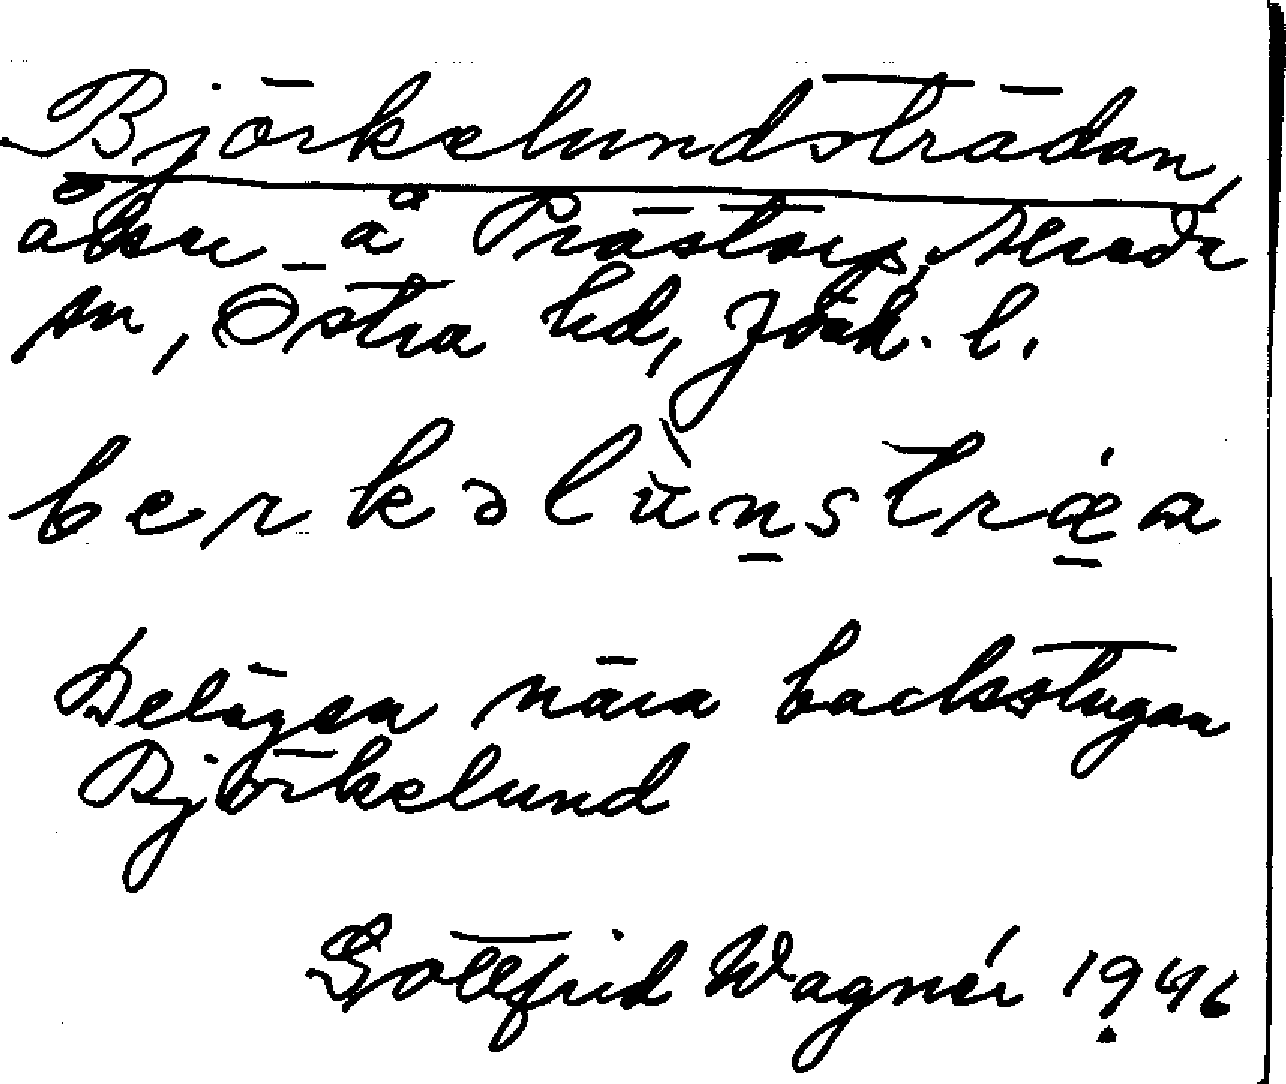 Björkelundsträdan,
åker å Prästorp, Alseda
sn, Östra hd, Jönk. l.
berkəlùnstrǽa
Belägen nära backstugan
Björkelund
Gottfrid Wagnér 1946